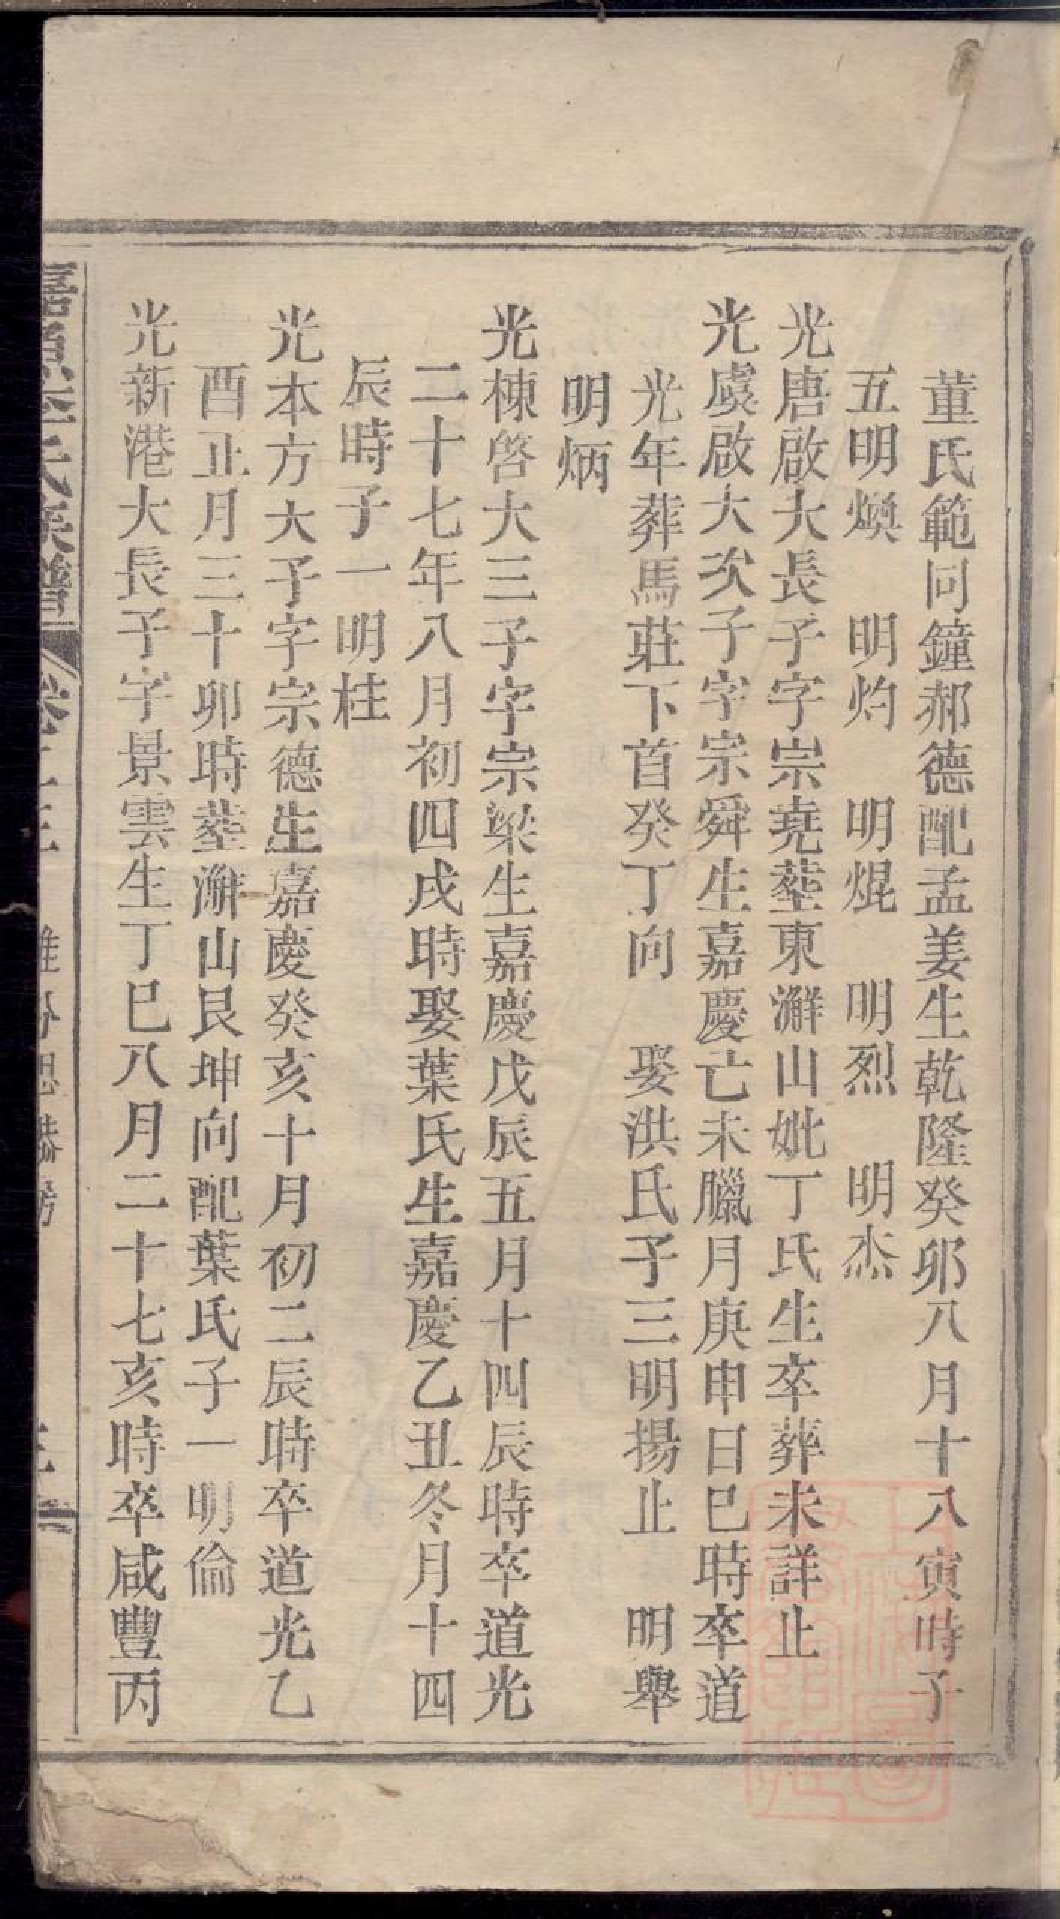 董氏範同鐘郝德配孟姜生乾隆癸卯八月十八寅時子
五明煥　明灼　明焜　明烈　明杰
光唐啟大長子字宗堯塟東澥山妣丁氏生卒葬未詳止
光虞啟大次子字宗舜生嘉慶亡未臘月庚申日巳時卒道
光年葬馬莊下首癸丁向　娶洪氏子三明揚止　明舉
明炳
光棟啓大三子字宗梁生嘉慶戊辰五月十四辰時卒道光
二十七年八月初四戌時娶葉氏生嘉慶乙丑冬月十四
辰時子一明桂
光本方大子字宗德生嘉慶癸亥十月初二辰時卒道光乙
酉正月三十卯時塟澥山艮坤向配葉氏子一明倫
光新港大長子字景雲生丁巳八月二十七亥時卒咸豐丙
氏族譜